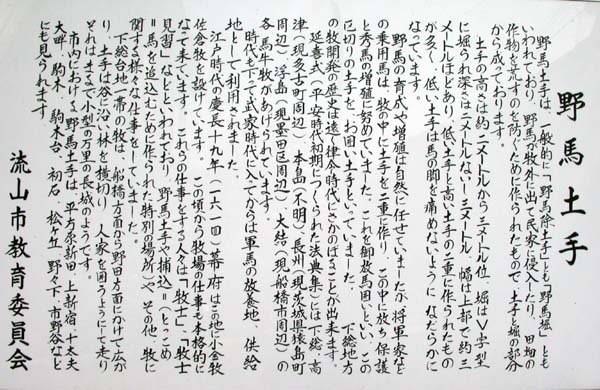 野馬土手
野馬土手は、一般的に「野馬除土手」とも「野馬堀」とも
いわれており、野馬が牧外に出て民家に侵入したり、田畑の
作物を荒すのを防ぐために作られたもので、土手と堀の部分
から成っております。
土手の高さは約二メートルから三メートル位、堀はV字型
に掘られ深さは二メートルないし三メートル、幅は上部で約三
メートルほどあり、低い土手と高い土手の二重に作られたもの
が多く、低い土手は馬の脚を痛めないように、なだらかに
なっています。
野馬の育成や増殖は自然に任せていましたが、将軍家など
の乗用馬は、牧の中に土手を二重に作り、この中に放ち保護
と秀馬の増殖に努めていました。これを御放馬囲いといい、この
区切りの土手を、お囲い土手といっていました。下総地方
の牧開発の歴史は遠く律令時代にさかのぼることが出来ます。
延喜式(平安時代初期につくられた法典集)には下総、高
津(現多古町周辺)本島(不明)長州(現茨城県猿島町
周辺)浮島(現墨田区周辺)大結(現船橋市周辺)の
各馬牛牧があげられています。
時代も下って武家時代に入ってからは軍馬の放養地、供給
地として利用されました。
江戸時代の慶長十九年(一六一四)幕府はこの地に小金牧
佐倉牧を設けています。この頃から牧場の仕事も本格的に
なって来ています。これらの仕事をする人々は「牧士」、「牧士
見習」などといわれており、野馬土手や捕込=(とっこめ
=馬を追込むために作られた特別な場所)や、その他、牧に
関する様々な仕事をしていました。
下総台地一帯の牧は、船橋方面から野田方面にかけて広が
り、土手は谷に沿い林を横切り、人家を囲うようにして走り
それはまるで小型の万里の長城のようです。
市内における野馬土手は、平方原新田、上新宿、十太夫
大畔、駒木、駒木台、初石、松ヶ丘、野々下、市野谷など
にも見られます。
流山市教育委員会